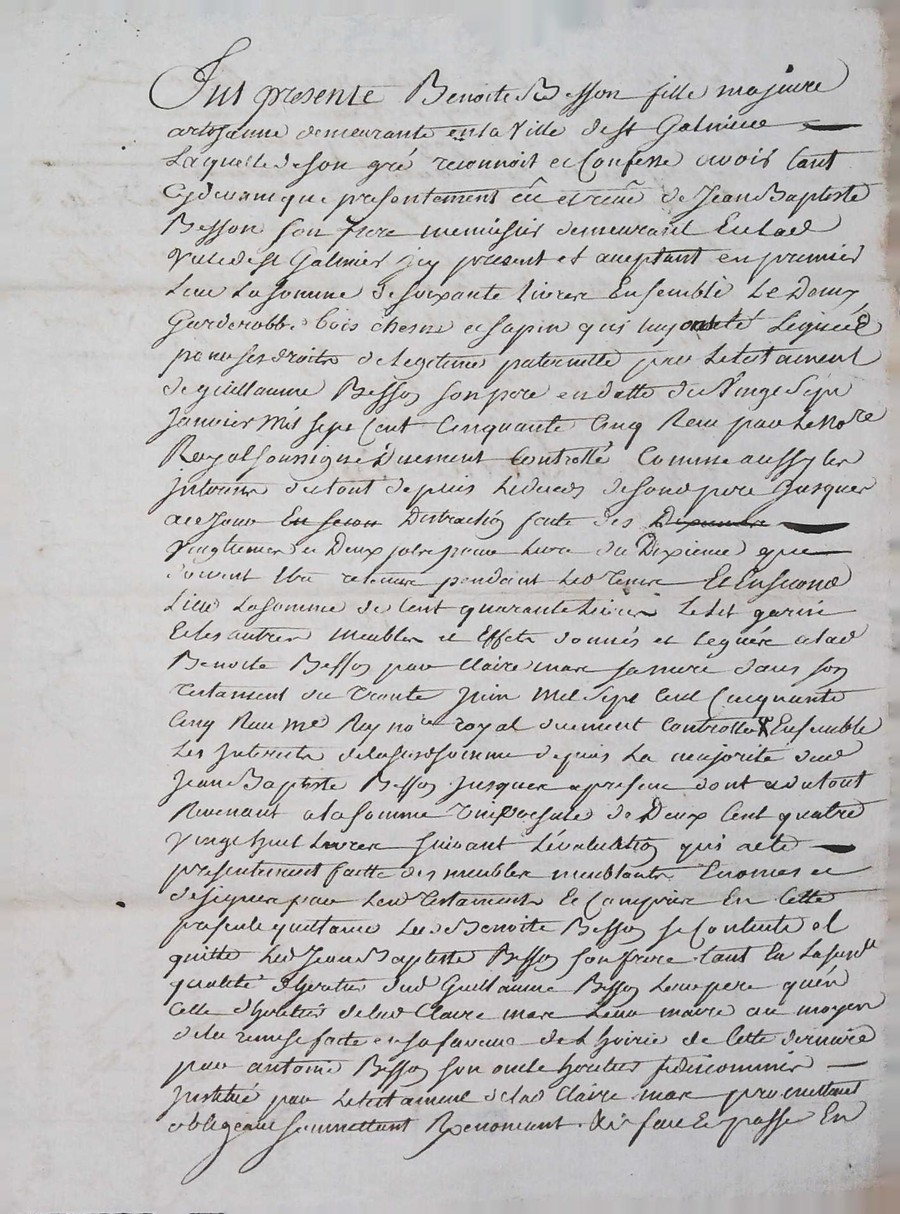 Fut presente Benoite Besson fille majeure
artisanne demeurante en la Ville de St Galmier
Laquelle de son gré reconnoit et Confesse avoir tant
cydevant que presentement eû et receu de Jean Baptiste
Besson son frere menuisier demeurant En lad
Ville de St Galmier icy present et aceptant en premier
Lieu La somme de soixante livres Ensemble Le Deux
Garderobbe bois chesne et sapin qui luy ont eté Leguée
pour ses droits de Legitime paternelle par Le testament
de guillaume Besson son pere en datte du Vingt Sept
Janvier Mil Sept Cent Cinquante Cinq Receu par Le No.re
Royal soussigné Duement Controllé Comme aussy les
Interets du tout depuis Le deceds de sond pere Jusques
a ce Jour Distraction faite des
Vingtiemes et Deux sols pour Livre du Dixieme que
doivent Etre retenus pendant Led tems Et En second
Lieu La somme de Cent quarante livres Le Lit garni
Et les autres meubles et Effets donnés et legués a lad
Benoite Besson par Claire mar sa mere dans son
testament du trente Juin Mil Sept Cent Cinquante
Cinq Receu me Rey no.re royal duement Controllé Ensemble
Les Interets de la susd somme depuis La majorité dud
Jean Baptiste Besson Jusques a present dont a du tout
Revenant a la somme Universelle de Deux Cent quatre
Vingt huit Livres suivant L'évaluation qui a eté
presentement faitte des meubles meublants Enomés et
designés par Lesd testaments Et Comprise En Cette
presente quittance Lad Benoite Besson se Contente et
quitte Led Jean Baptiste Besson son frere tant En La susd.te
qualité d'heritier dud Guillaume Besson Leur pere quén
Celle d'heritier de lad Claire mar Leur mere au moyen
de la remise faite en sa faveur de L hoirie de Cette derniere
par antoine Besson son oncle heritier fideicommis
Institué par Le testament de lad Claire mar promettant
obligeant soumettant Renoncant fait Et passé En